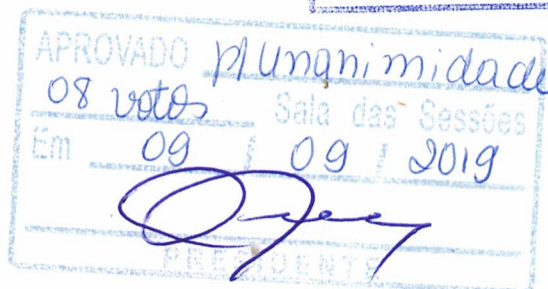 APROVADO p/ Unanimidade
08 votos Sala das Sessões
Em 09 / 09 / 2019
PRESIDENTE